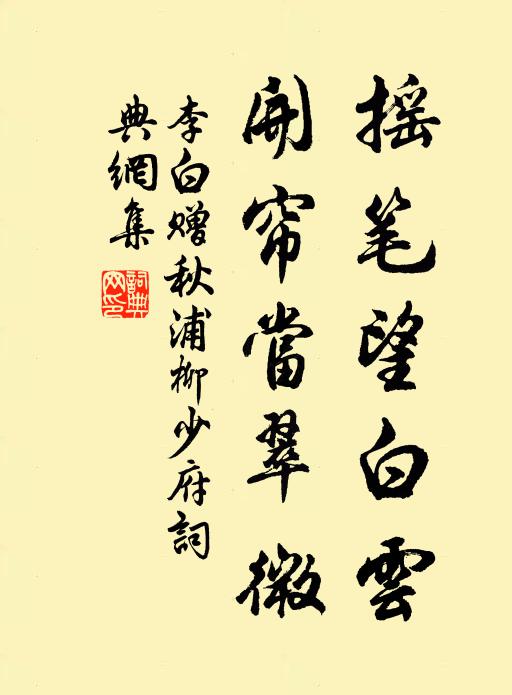 摇笔望白雲
開帘當翠微
李白赠秋浦柳少府詞
典網集
詞典网印